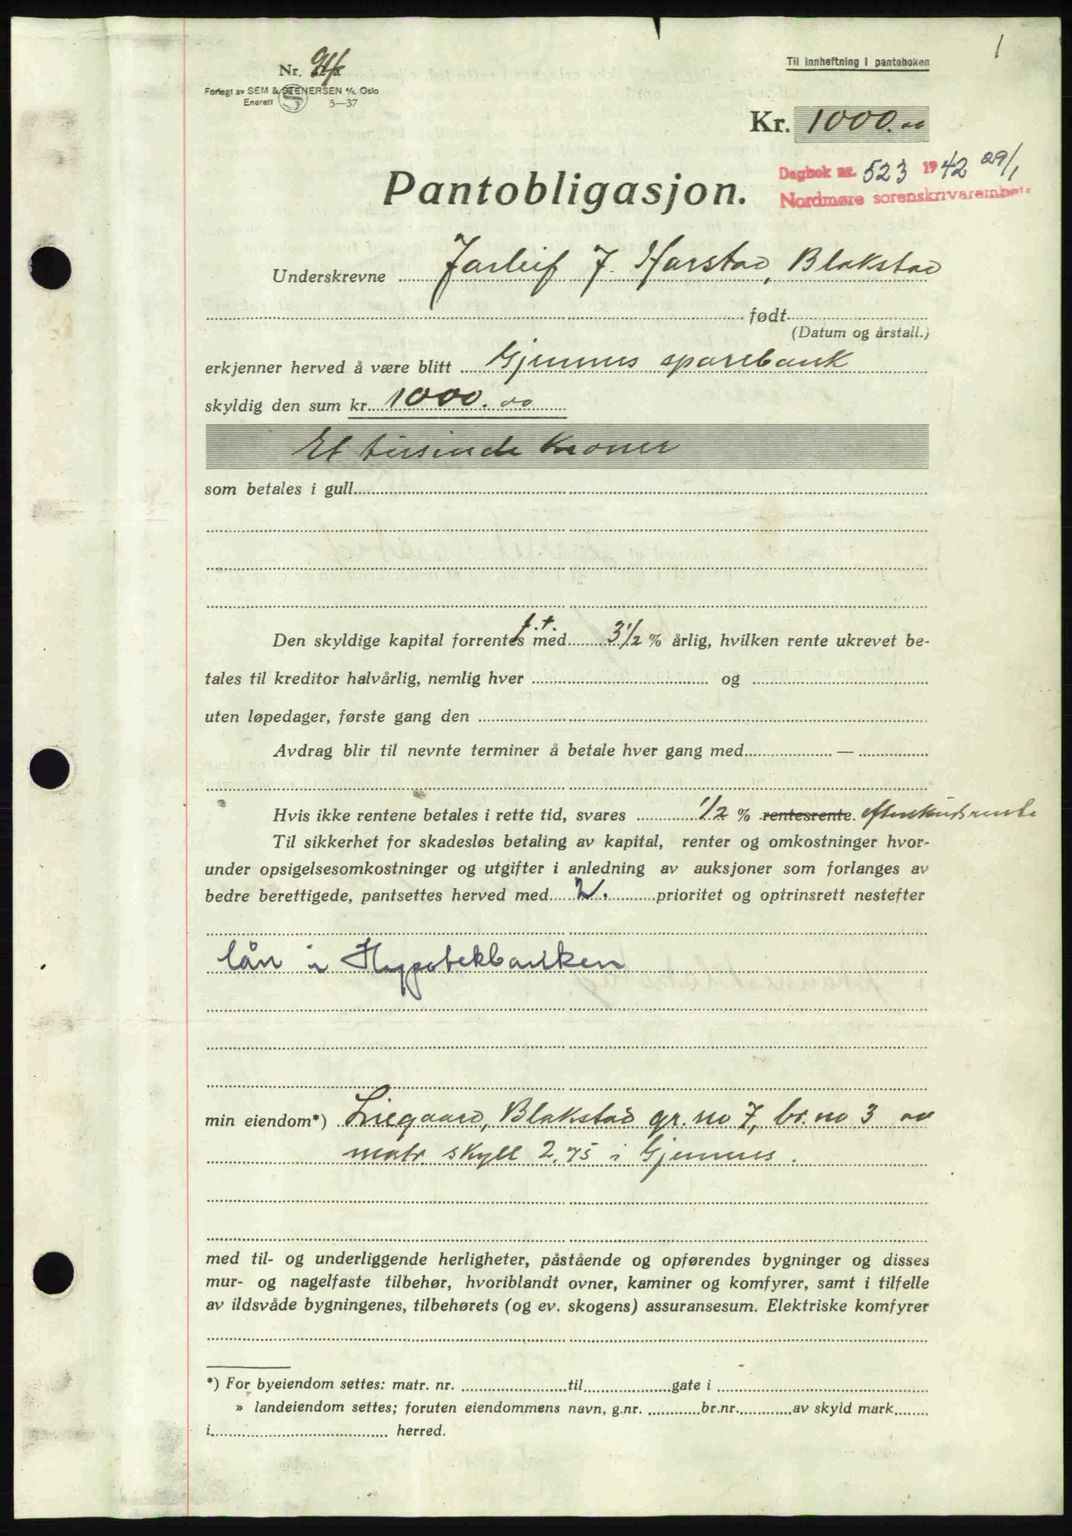 1
Til innheftning i panteboken
Nr.
Forlegt av SEM & STENERSEN A/S, Oslo
Enerett S 5—37
Kr. 1000.oo
Dagbok nr. 523 1942 29/1
Nordmøre sorenskrivarembete
Pantobligasjon.
Underskrevne Jarleif J. Harstad, Blakstad
født
(Datum og årstall.)
erkjenner herved å være blitt Gjemnes sparebank
skyldig den sum kr. 1000.oo
Et tusinde kroner
som betales i gull
Den skyldige kapital forrentes f.t. med 3 1/2 % årlig, hvilken rente ukrevet be-
tales til kreditor halvårlig, nemlig hver og
uten løpedager, første gang den
Avdrag blir til nevnte terminer å betale hver gang med —
Hvis ikke rentene betales i rette tid, svares 1/2 % rentesrente. efterskudsrente
Til sikkerhet for skadesløs betaling av kapital, renter og omkostninger hvor-
under opsigelsesomkostninger og utgifter i anledning av auksjoner som forlanges av
bedre berettigede, pantsettes herved med 2. prioritet og optrinsrett nestefter
lån i Hypotekbanken
min eiendom*) Liegaard, Blakstad gr. no 7, br. no 3 av
matr. skyll 2,75 i Gjemnes.
med til- og underliggende herligheter, påstående og opførendes bygninger og disses
mur- og nagelfaste tilbehør, hvoriblandt ovner, kaminer og komfyrer, samt i tilfelle
av ildsvåde bygningenes, tilbehørets (og ev. skogens) assuransesum. Elektriske komfyrer
*) For byeiendom settes: matr. nr. til gate i
» landeiendom settes; foruten eiendommens navn, g.nr. br.nr. av skyld mark
i herred.